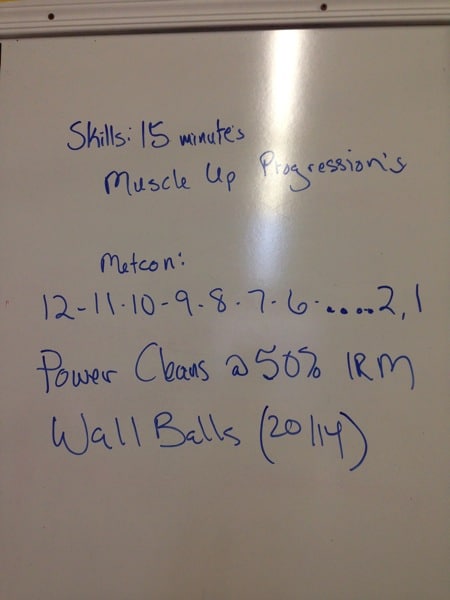 Skills: 15 minute's
Muscle Up Progression's
Metcon:
12-11-10-9-8-7-6.....2,1
Power Cleans @ 50% 1RM
Wall Balls (20/14)